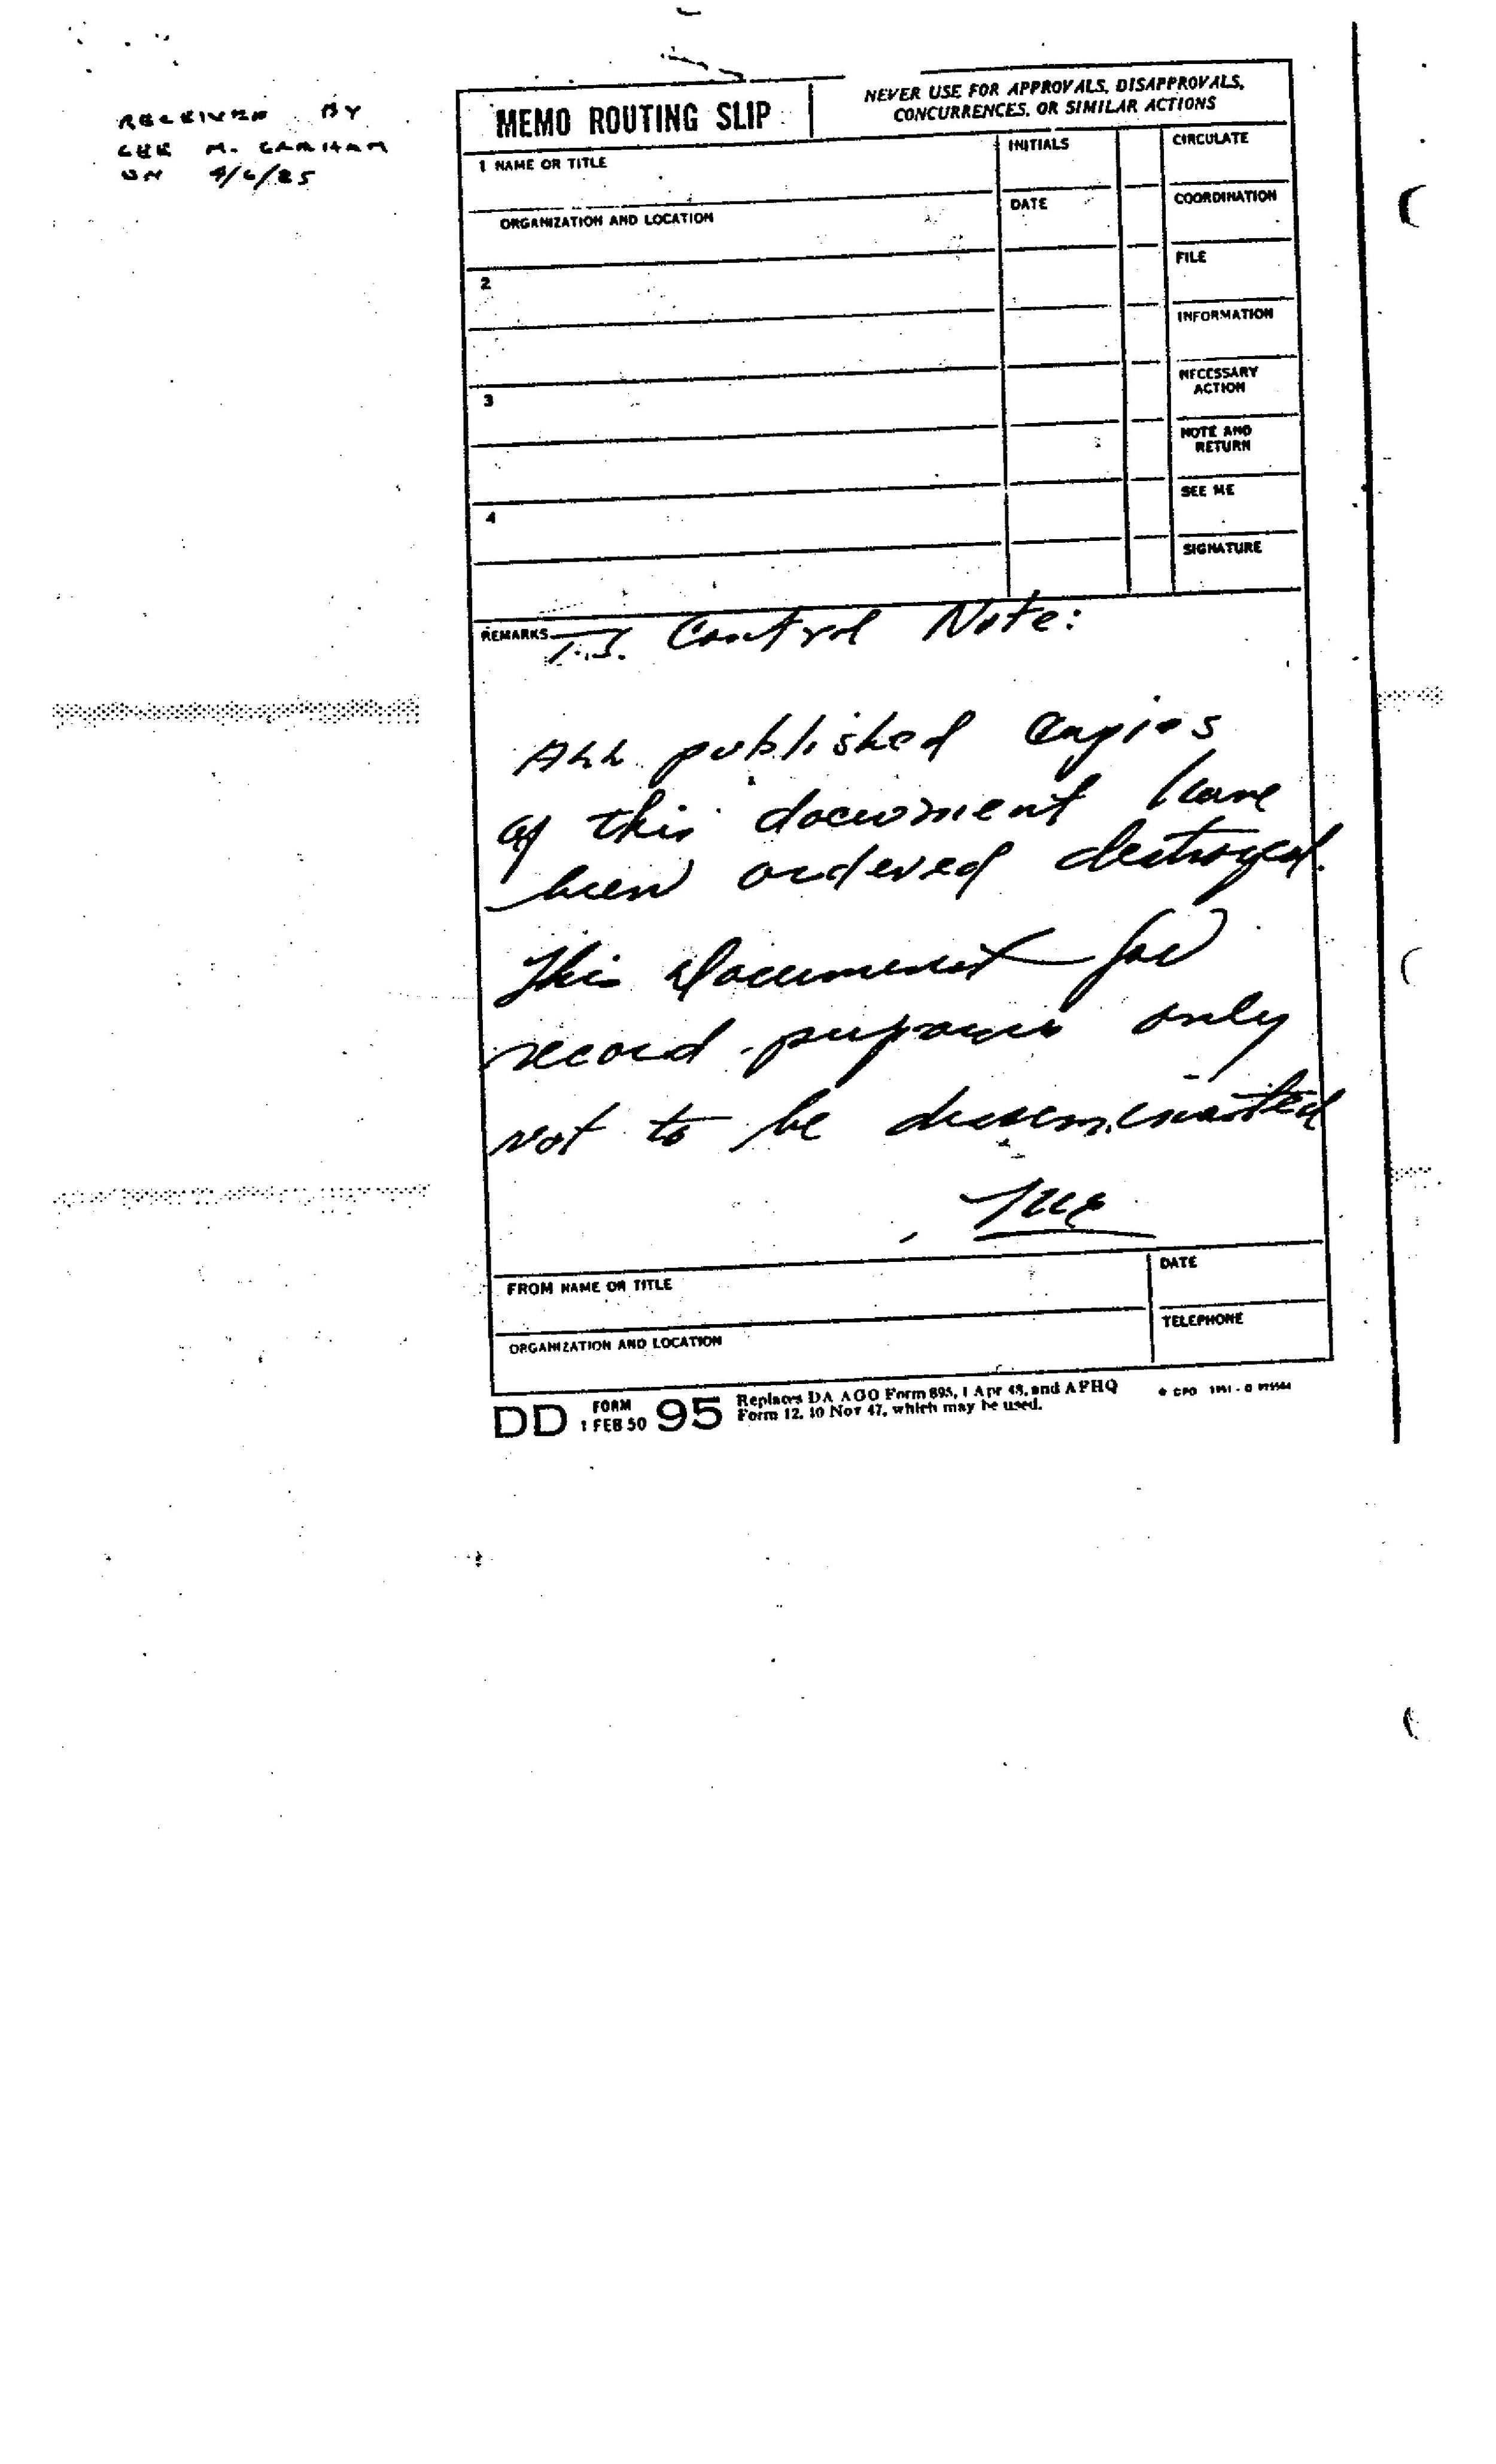 RECEIVED BY
M. GRAHAM
ON 4/6/85
MEMO ROUTING SLIP
NEVER USE FOR APPROVALS, DISAPPROVALS,
CONCURRENCES, OR SIMILAR ACTIONS
1 NAME OR TITLE
INITIALS
CIRCULATE
ORGANIZATION AND LOCATION
DATE
COORDINATION
2
FILE
INFORMATION
3
NECESSARY
ACTION
NOTE AND
RETURN
4
SEE ME
SIGNATURE
REMARKS
Control Note:
All published Copies
of this document have
been ordered destroyed.
This document for
record purposes only
not to be disseminated
FROM NAME OR TITLE
DATE
ORGANIZATION AND LOCATION
TELEPHONE
DD FORM 1 FEB 50 95
Replaces DA AGO Form 895, 1 Apr 48, and AFHQ
Form 12, 10 Nov 47, which may be used.
GPO 1951 - O